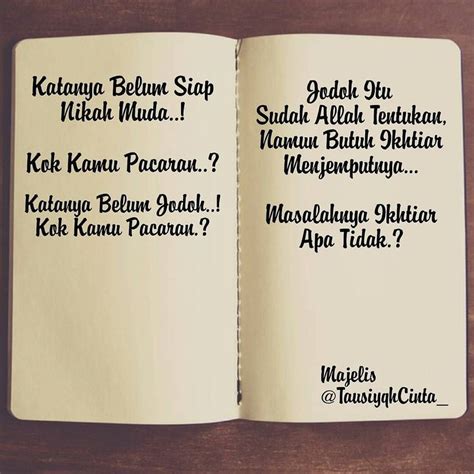 Katanya Belum Siap
Nikah Muda..!
Kok Kamu Pacaran..?
Katanya Belum Jodoh..!
Kok Kamu Pacaran.?
Jodoh Itu
Sudah Allah Tentukan,
Namun Butuh Ikhtiar
Menjemputnya...
Masalahnya Ikhtiar
Apa Tidak.?
Majelis
@TausiyqhCinta_